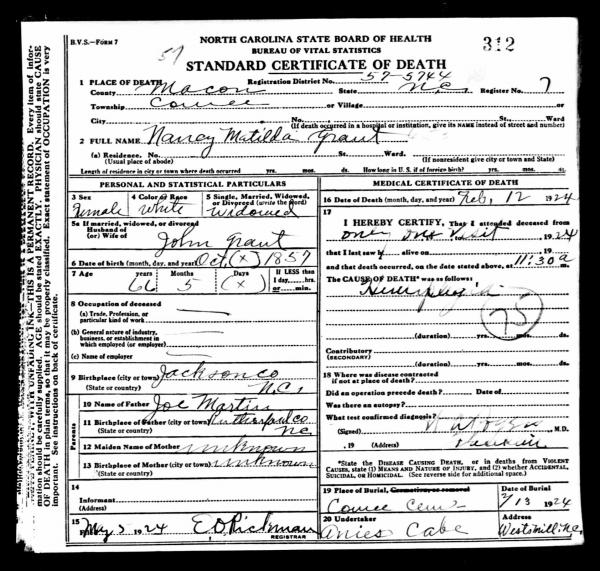 B.V.S.—FORM 7
NORTH CAROLINA STATE BOARD OF HEALTH
BUREAU OF VITAL STATISTICS
STANDARD CERTIFICATE OF DEATH
57
312
1 PLACE OF DEATH Registration District No. 57-5744
County Macon State N.C. Register No. 7
Township Cowee or Village or
City No. St. Ward
(If death occurred in a hospital or institution, give its NAME instead of street and number)
2 FULL NAME Nancy Matilda Grant
(a) Residence. No. St., Ward.
(Usual place of abode) (If nonresident give city or town and State)
Length of residence in city or town where death occurred yrs. mos. ds. How long in U.S. if of foreign birth? yrs. mos. ds.
PERSONAL AND STATISTICAL PARTICULARS
3 Sex 4 Color or Race 5 Single, Married, Widowed, or Divorced (write the word)
Female White Widowed
5a If married, widowed, or divorced
Husband of
(or) Wife of John Grant
6 Date of birth (month, day, and year) Oct (X) 1857
7 Age years Months Days If LESS than
66 5 (X) 1 day, hrs.
or min.
8 Occupation of deceased
(a) Trade, Profession, or
particular kind of work
(b) General nature of industry,
business, or establishment in
which employed (or employer)
(c) Name of employer
9 Birthplace (city or town) Jackson Co
(State or country) N.C.
Parents
10 Name of Father Joe Martin
11 Birthplace of Father (city or town) Rutherford Co
(State or country) N.C.
12 Maiden Name of Mother unknown
13 Birthplace of Mother (city or town) unknown
(State or country)
14
Informant
(Address)
15
Filed May 5 1924 REGISTRAR
MEDICAL CERTIFICATE OF DEATH
16 Date of Death (month, day, and year) Feb. 12 1924
17
I HEREBY CERTIFY, That I attended deceased from
one visit 1924
that I last saw h alive on 19
and that death occurred, on the date stated above, at 11:30 a
The CAUSE OF DEATH* was as follows:
Hemiplegia
75
(duration) yrs. mos. ds.
Contributory
(SECONDARY)
(duration) yrs. mos. ds.
18 Where was disease contracted
if not at place of death?
Did an operation precede death? Date of
Was there an autopsy?
What test confirmed diagnosis?
(Signed) M.D.
, 19 (Address)
*State the DISEASE CAUSING DEATH, or in deaths from VIOLENT
CAUSES, state (1) MEANS AND NATURE OF INJURY, and (2) whether ACCIDENTAL,
SUICIDAL, or HOMICIDAL. (See reverse side for additional space.)
19 Place of Burial, Cremation, or removal Date of Burial
Cowee Cem. 2/13 1924
20 Undertaker Address
Cabe Westsmill, N.C.